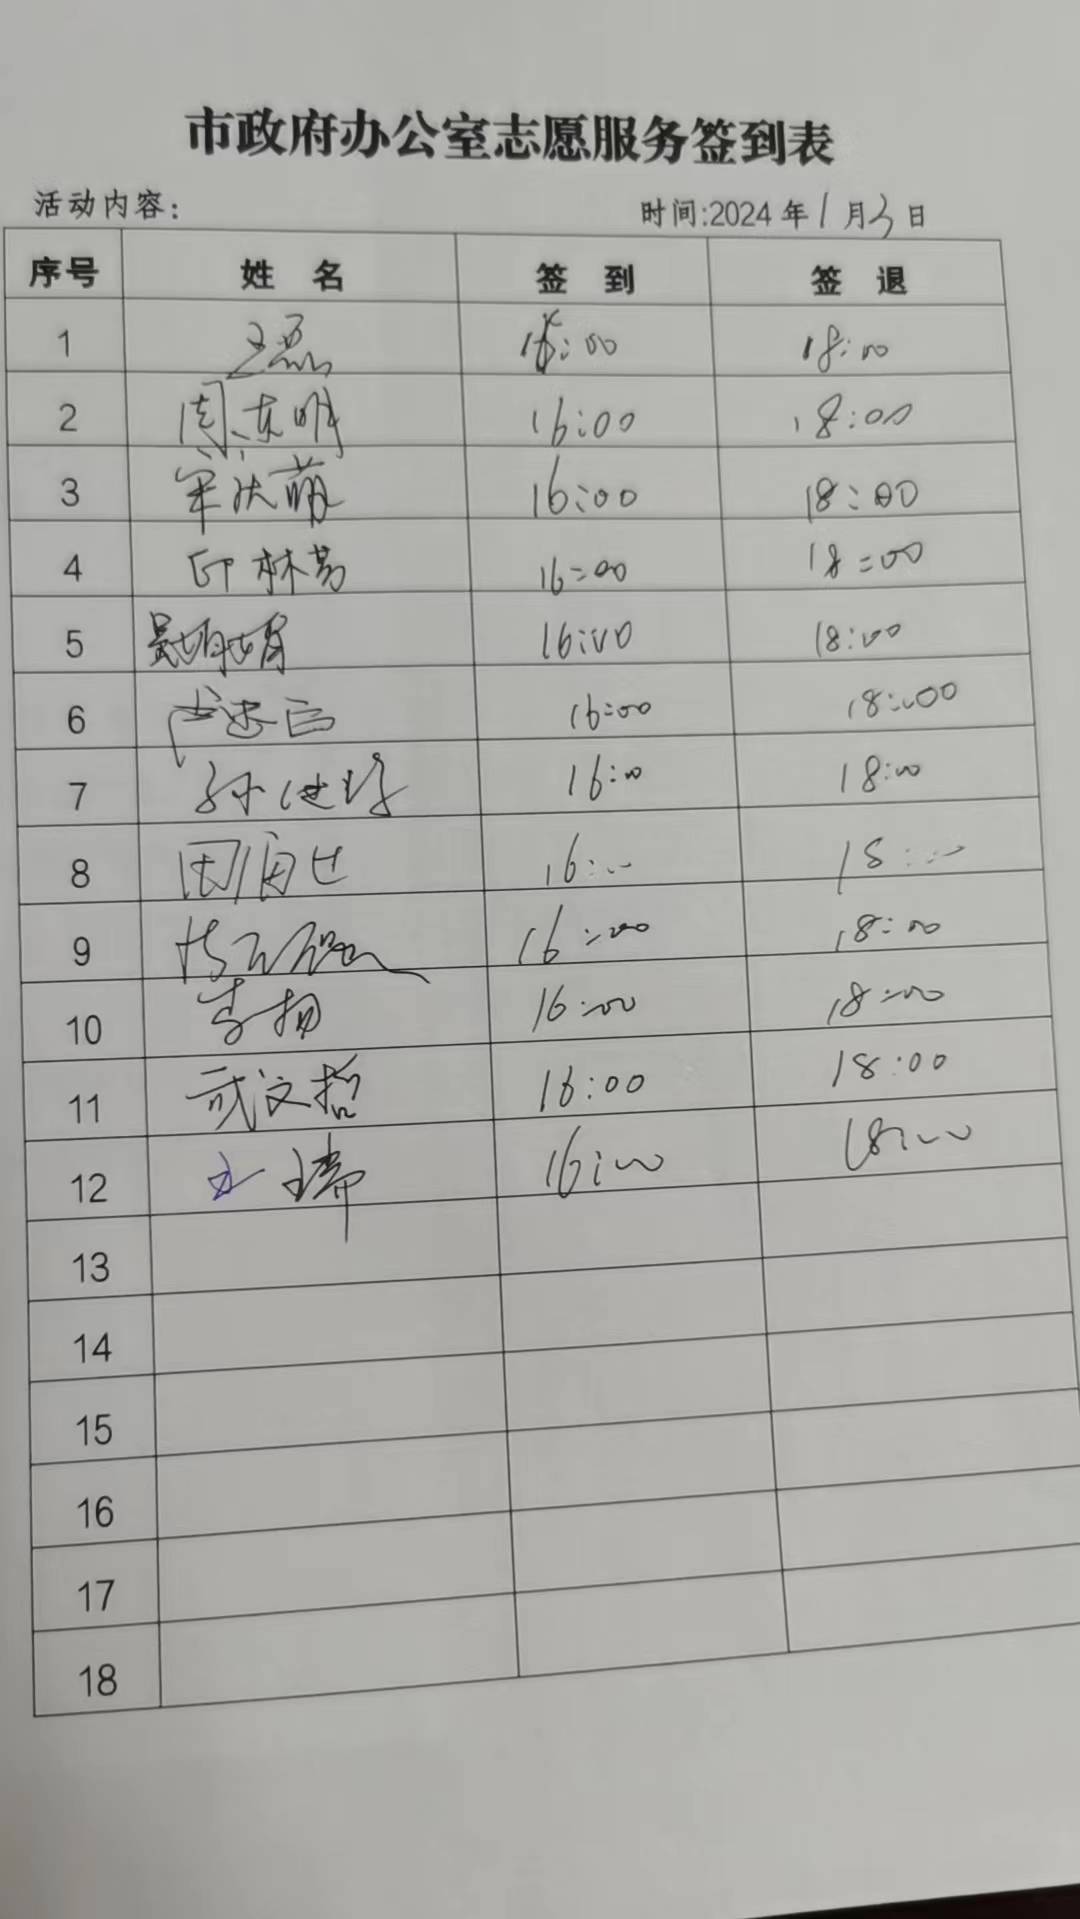 市政府办公室志愿服务签到表
活动内容: 时间:2024年1月3日
序号 姓名 签到 签退
1 王磊 16:00 18:00
2 周东明 16:00 18:00
3 16:00 18:00
4 印林易 16:00 18:00
5 16:00 18:00
6 16:00 18:00
7 16:00 18:00
8 16:00 18:00
9 16:00 18:00
10 李扬 16:00 18:00
11 武文哲 16:00 18:00
12 16:00 18:00
13
14
15
16
17
18